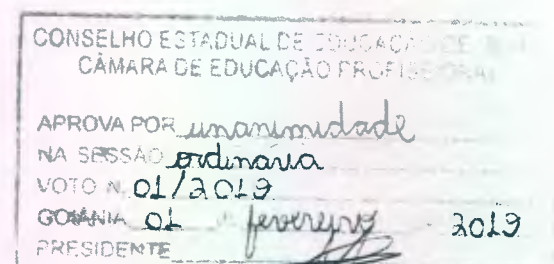 CONSELHO ESTADUAL DE EDUCAÇÃO DE
CÂMARA DE EDUCAÇÃO PROFISSIONAL
APROVA POR unanimidade
NA SESSÃO ordinária
VOTO N. 01/2019
GOIÂNIA 01 fevereiro 2019
PRESIDENTE